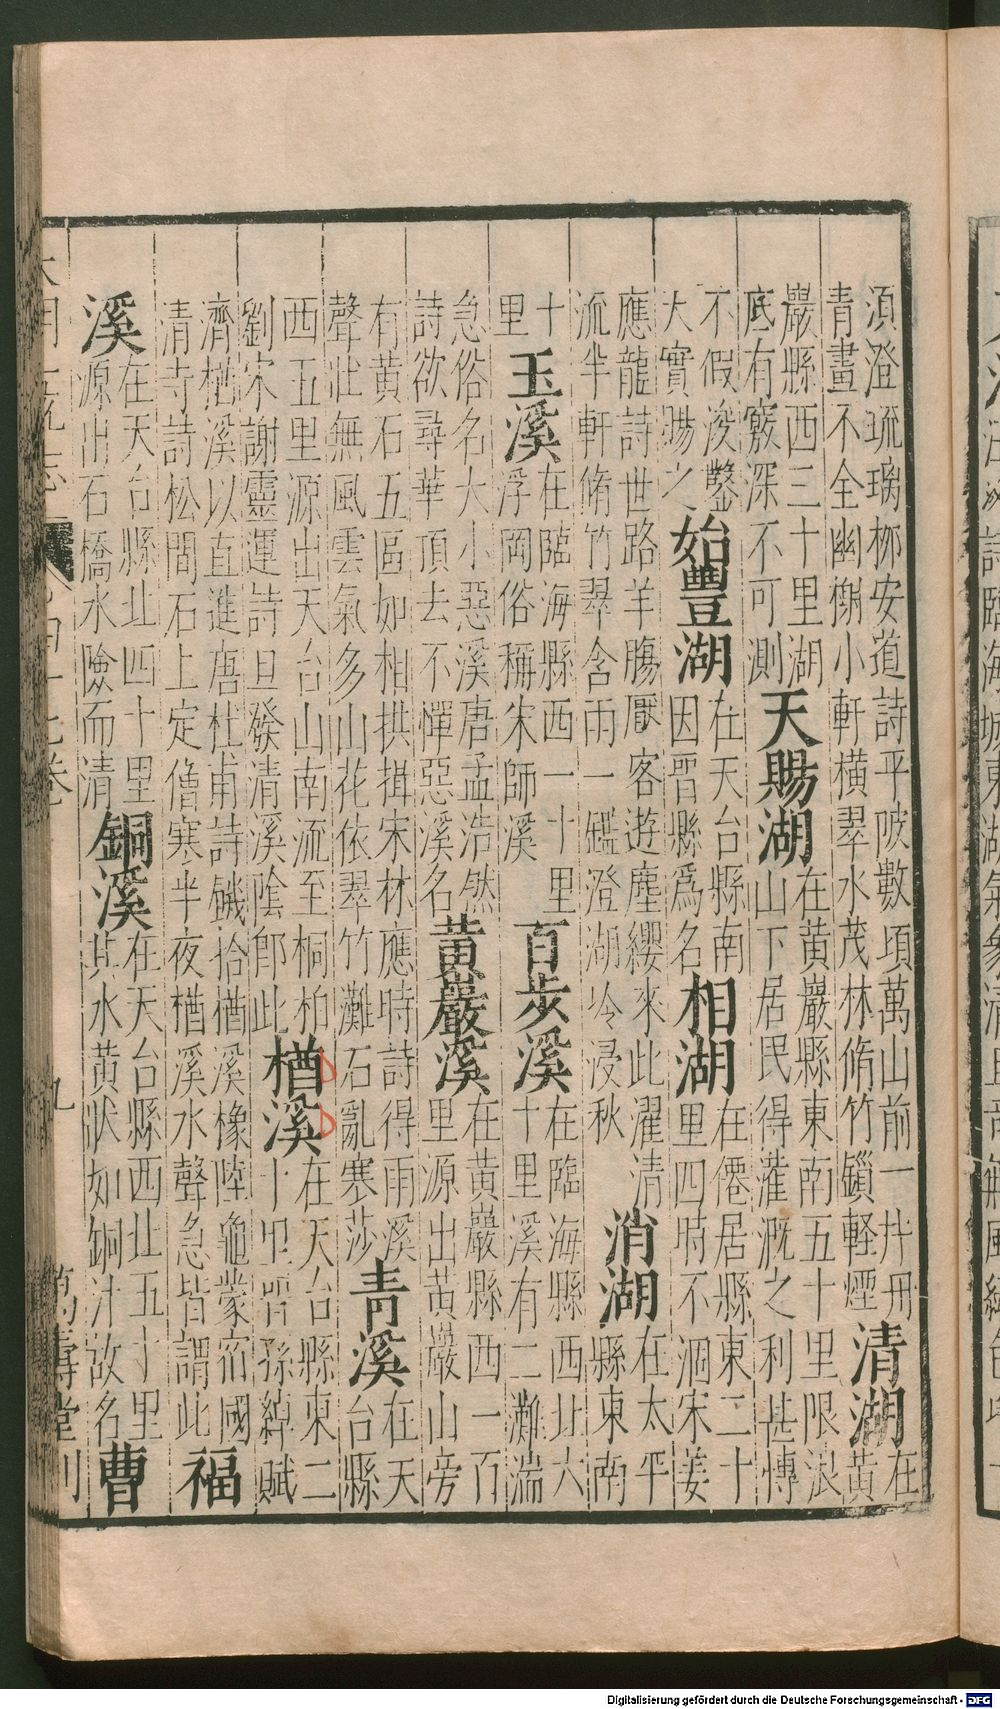 湏澄琉璃栁安道詩平陂數頃萬山前一片丹
青畫不全幽榭小軒橫翠水茂林脩竹鎻軽煙
清湖
在黃
巖縣西三十里湖
底有竅深不可測
天賜湖
在黃巖縣東南五十里限浪
山下居民得灌溉之利甚慱
不假浚鑿
大實賜之
始豐湖
在天台縣南
因晋縣爲名
相湖
在僊居縣東二十
里四時不涸宋姜
應龍詩世路羊膓厭客遊塵纓來此濯清
流半軒脩竹翠含雨一鑑澄湖冷浸秋
消湖
在太平
縣東南
十
里
玉溪
在臨海縣西一十里
浮岡俗稱宋師溪
百步溪
在臨海縣西北六
十里溪有二灘湍
急俗名大小惡溪唐孟浩然
詩欲尋華頂去不憚惡溪名
黃巖溪
在黃巖縣西一百
里源出黃巖山旁
有黃石五區如相拱揖宋林應時詩得雨溪
聲壯無風雲氣多山花依翠竹灘石亂寒莎
青溪
在天
台縣
西五里源出天台山南流至桐柏
劉宋謝靈運詩旦發清溪陰卽此
楢溪
在天台縣東二
十里晋孫綽賦
濟楢溪以直進唐杜甫詩饑拾楢溪橡陸龜蒙宿國
清寺詩松間石上定僧寒半夜楢溪水聲急皆謂此
福
溪
在天台縣北四十里
源出石橋水險而清
銅溪
在天台縣西北五十里
其水黃狀如銅汁故名
曹
九
萬壽堂刊
Digitalisierung gefördert durch die Deutsche Forschungsgemeinschaft - DFG